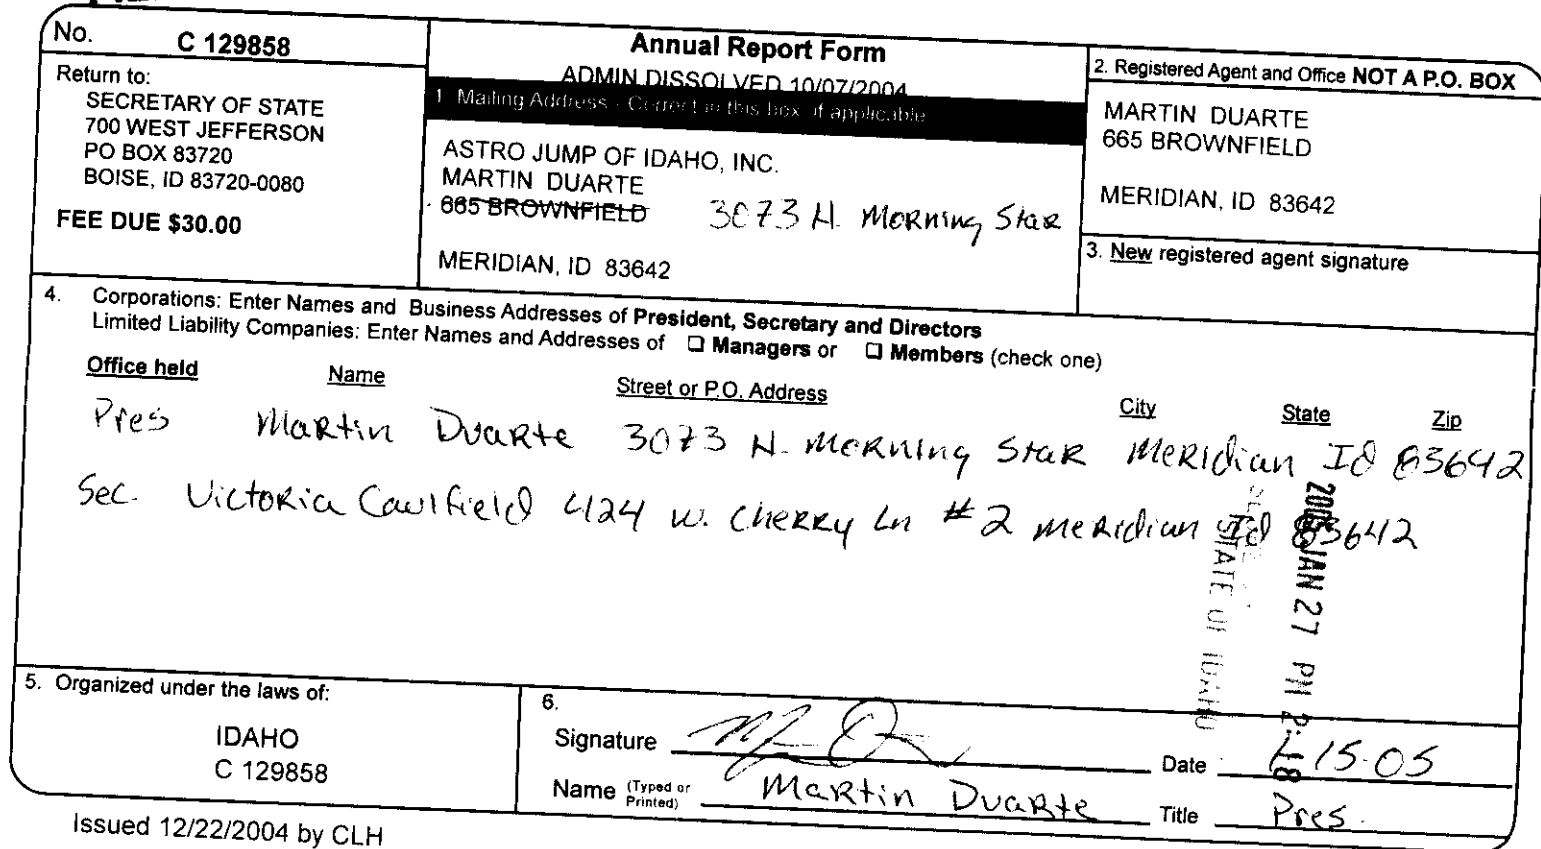 No. C 129858
Return to:
SECRETARY OF STATE
700 WEST JEFFERSON
PO BOX 83720
BOISE, ID 83720-0080
FEE DUE $30.00
Annual Report Form
ADMIN DISSOLVED 10/07/2004
1. Mailing Address - Correct in this box if applicable
ASTRO JUMP OF IDAHO, INC.
MARTIN DUARTE
665 BROWNFIELD 3073 N. Morning Star
MERIDIAN, ID 83642
2. Registered Agent and Office NOT A P.O. BOX
MARTIN DUARTE
665 BROWNFIELD
MERIDIAN, ID 83642
3. New registered agent signature
4. Corporations: Enter Names and Business Addresses of President, Secretary and Directors
Limited Liability Companies: Enter Names and Addresses of ☐ Managers or ☐ Members (check one)
Office held Name Street or P.O. Address City State Zip
Pres Martin Duarte 3073 N. Morning Star Meridian Id 83642
Sec. Victoria Caulfield 424 W. Cherry Ln #2 Meridian Id 83642
2005 JAN 27 PM 2:18
STATE OF IDAHO
5. Organized under the laws of:
IDAHO
C 129858
6.
Signature
Date 1-15-05
Name (Typed or Printed) Martin Duarte Title Pres.
Issued 12/22/2004 by CLH